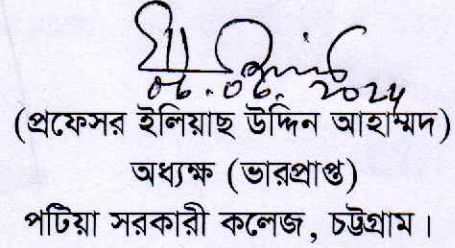 06.06.2024
(প্রফেসর ইলিয়াছ উদ্দিন আহাম্মদ)
অধ্যক্ষ (ভারপ্রাপ্ত)
পটিয়া সরকারী কলেজ, চট্টগ্রাম।